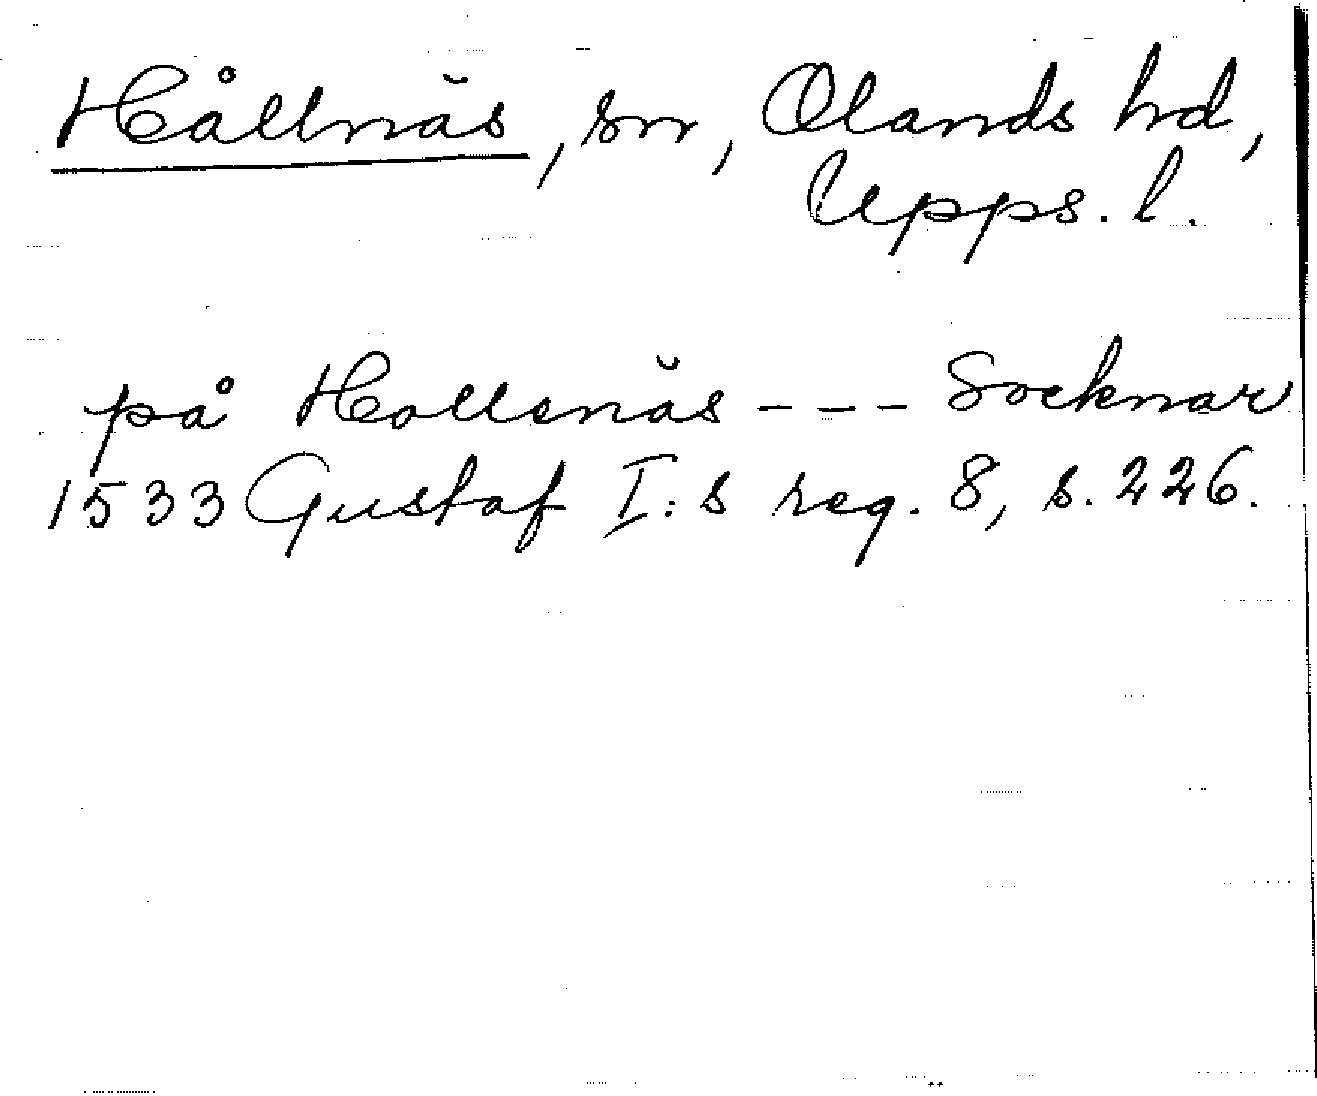 Hållnäs, sn, Olands hd,
Upps. l.
på Hollenäs --- Socknar
1533 Gustaf I:s reg. 8, s. 226.